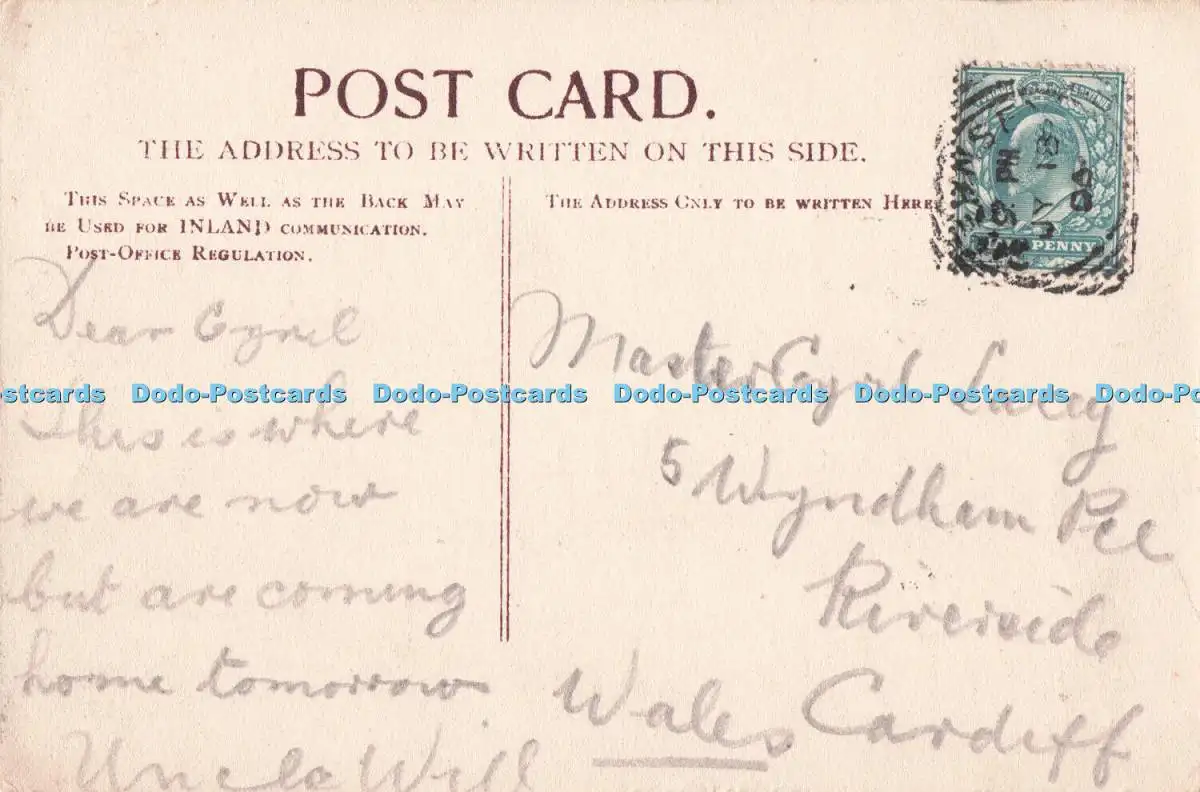 POST CARD.
THE ADDRESS TO BE WRITTEN ON THIS SIDE.
THIS SPACE AS WELL AS THE BACK MAY
BE USED FOR INLAND COMMUNICATION.
POST-OFFICE REGULATION.
THE ADDRESS ONLY TO BE WRITTEN HERE
POSTAGE REVENUE
PENNY
PM
18
Dear Cyril
This is where
we are now
but are coming
home tomorrow
Uncle Will
Master Cyril Lacey
5 Wyndham Pce
Riverside
Wales Cardiff
Dodo-Postcards Dodo-Postcards Dodo-Postcards Dodo-Postcards